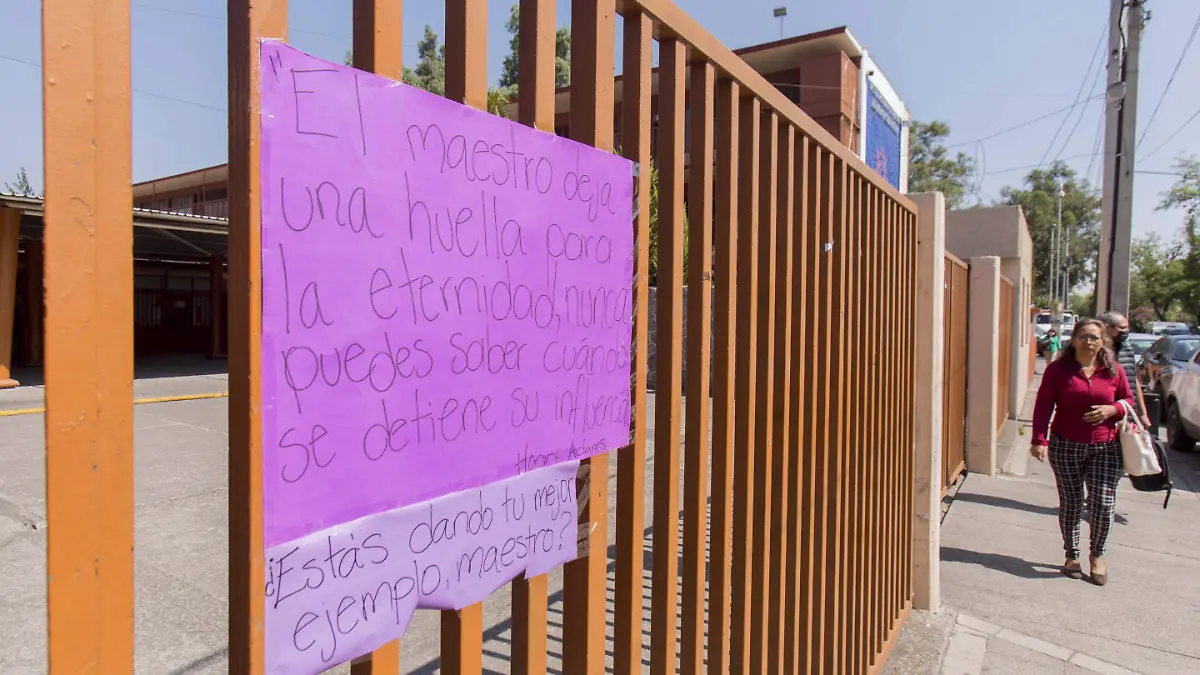 "El maestro deja
una huella para
la eternidad, nunca
puedes saber cuándo
se detiene su influencia
Henry Adams
¿Estás dando tu mejor
ejemplo, maestro?